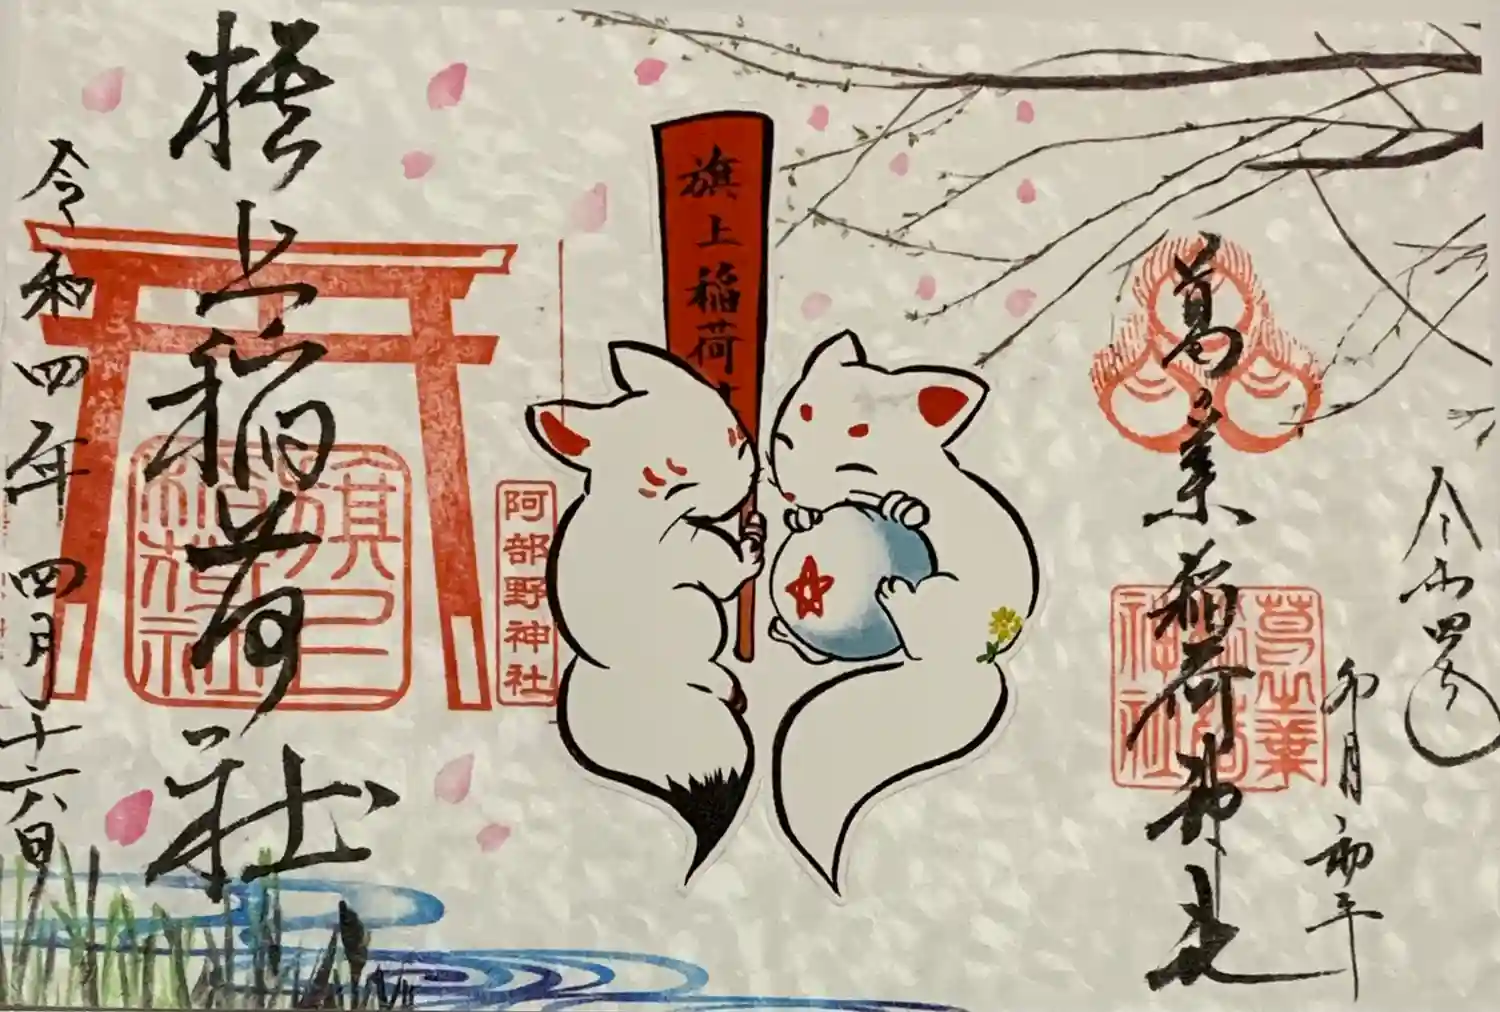 令和四
卯月初午
葛の葉稲荷神社
葛之葉
神社
旗上稲荷
阿部野神社
旗上稲荷社
令和四年四月十六日